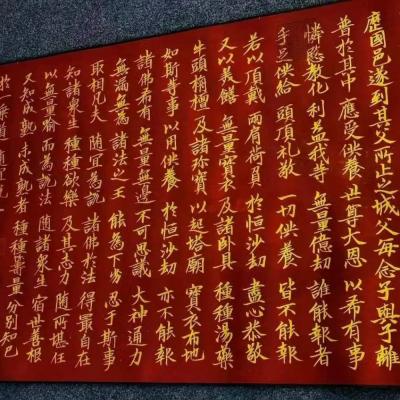 歷國邑遂到其父所止之城父每念子與子離
普於其中 應受供養 世尊大恩 以希有事
憐愍教化 利益我等 無量億劫 誰能報者
手足供給 頭頂禮敬 一切供養 皆不能報
若以頂戴 兩肩荷負 於恒沙劫 盡心恭敬
又以美饍 無量寶衣 及諸臥具 種種湯藥
牛頭栴檀 及諸珍寶 以起塔廟 寶衣布地
如斯等事 以用供養 於恒沙劫 亦不能報
諸佛希有 無量無邊 不可思議 大神通力
無漏無為 諸法之王 能為下劣 忍于斯事
取相凡夫 隨宜為說 諸佛於法 得最自在
知諸眾生 種種欲樂 及其志力 隨所堪任
以無量喻 而為說法 隨諸眾生 宿世善根
又知成熟 未成熟者 種種籌量 分別知已
於 乘道 隨宜說